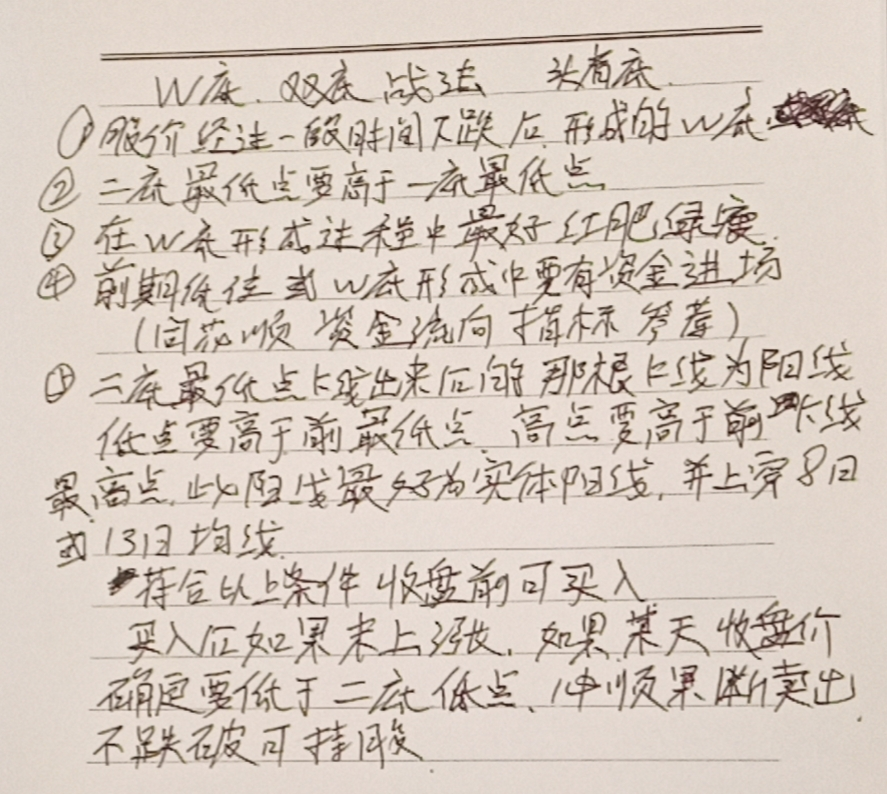 W底、双底战法 头肩底
①股价经过一段时间下跌后,形成的W底
②二底最低点要高于一底最低点
③在W底形成过程中最好红肥绿瘦
④前期低位或W底形成中要有资金进场
(同花顺 资金流向 指标 筹幕)
⑤二底最低点K线出来后的那根K线为阳线
低点要高于前最低点、高点要高于前一K线
最高点,此阳线最好为实体阳线,并上穿8日
或13日均线
符合以上条件 收盘前可买入
买入后如果未上涨,如果某天收盘价
确定要低于二底低点、果断卖出
不跌破可持股